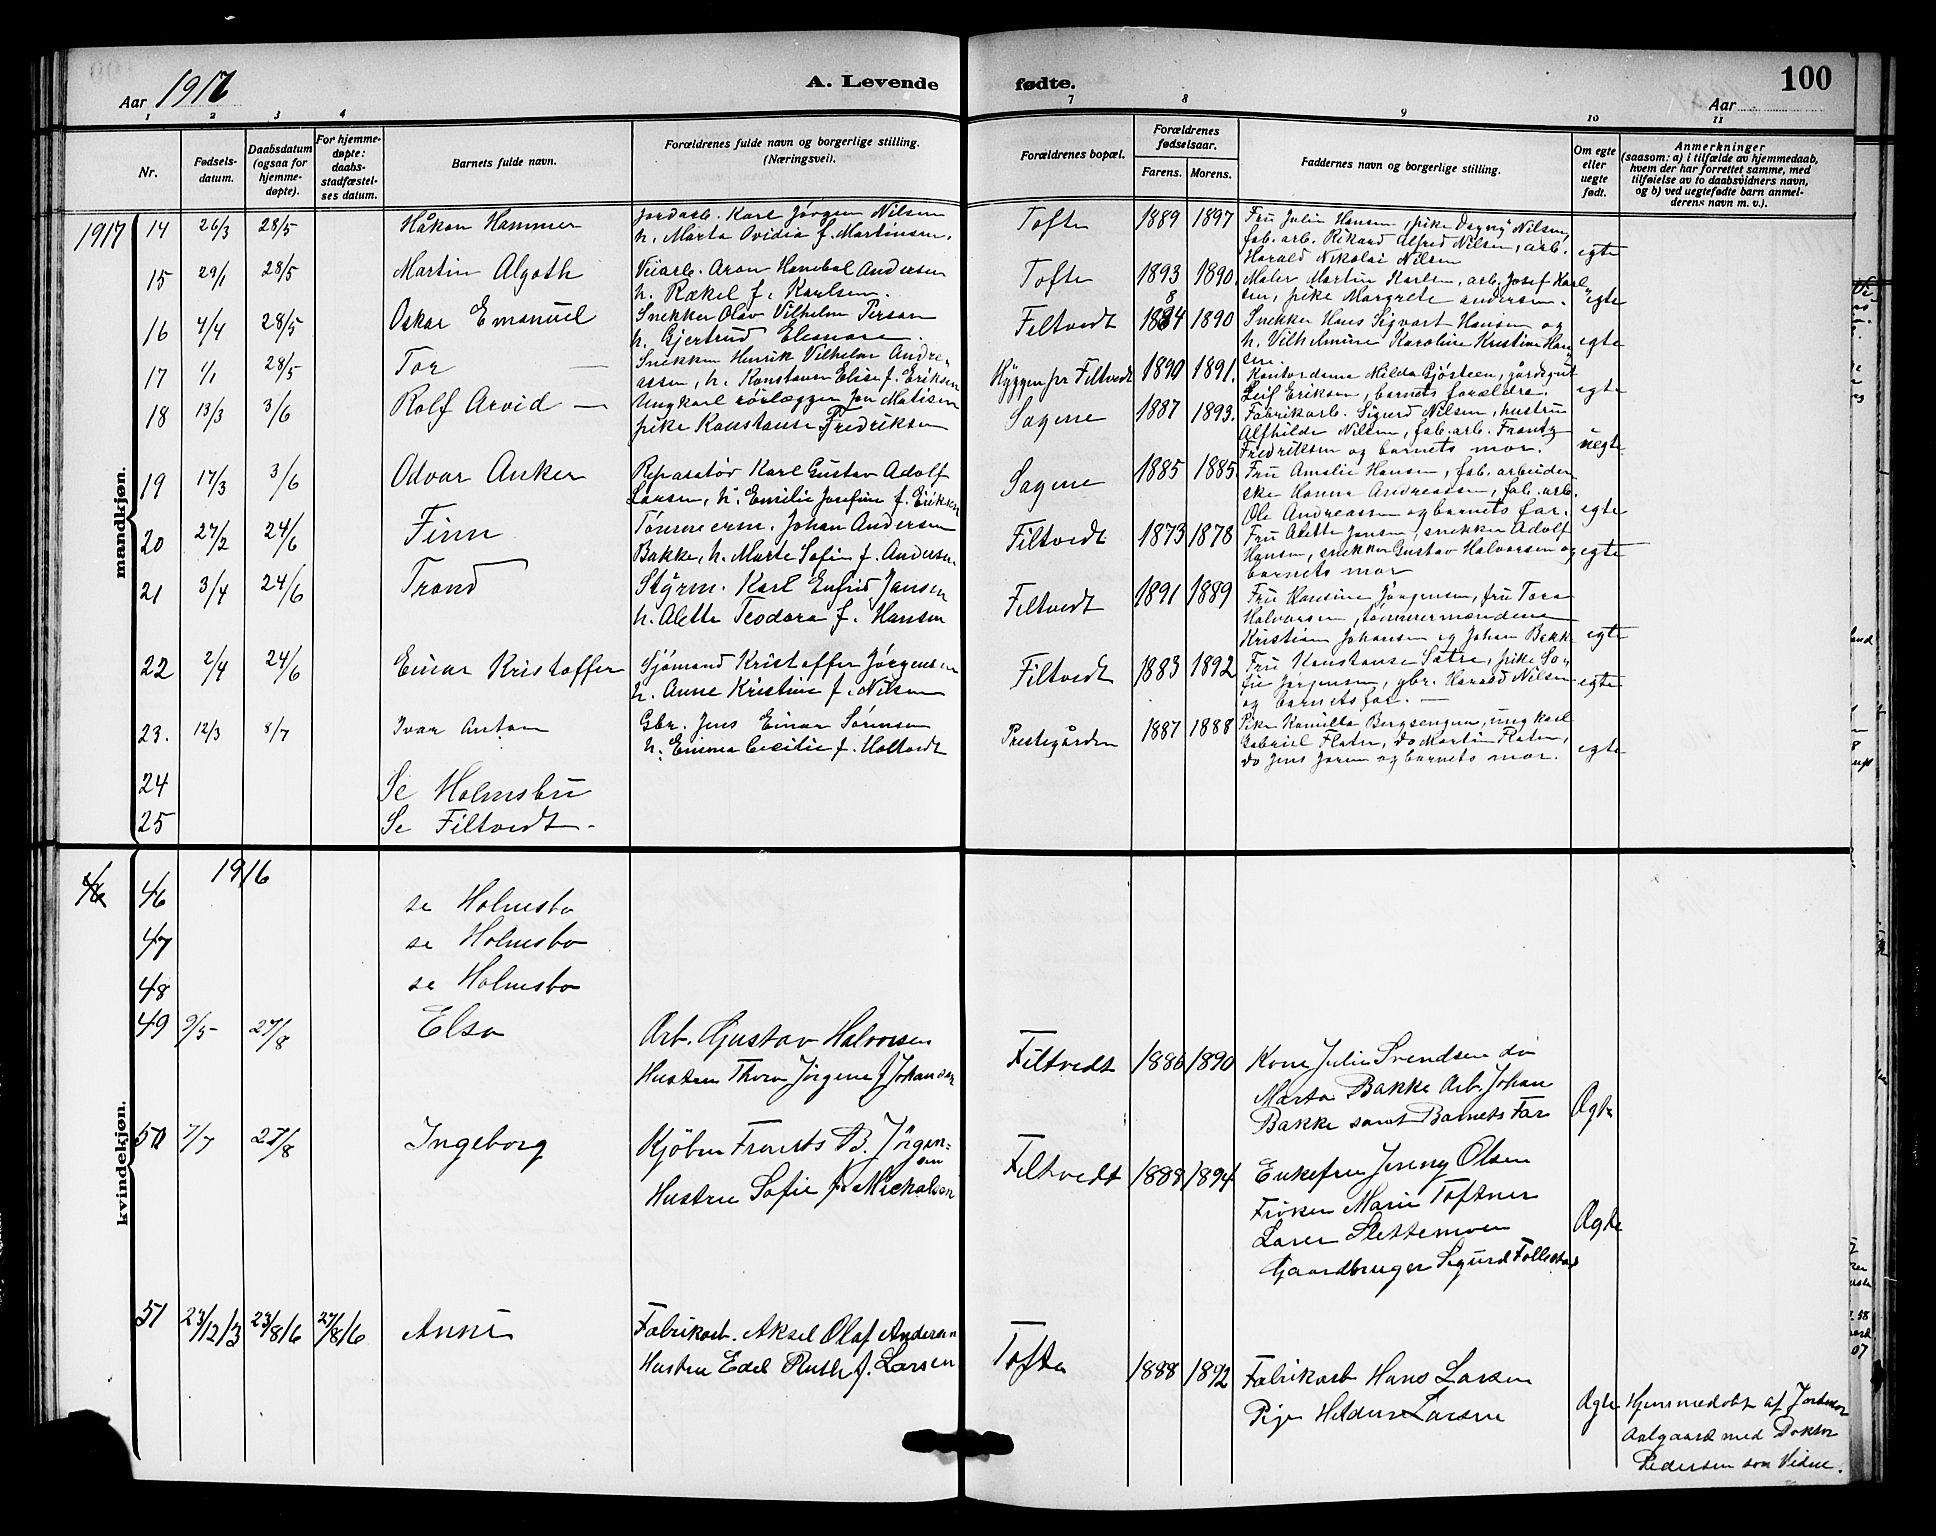 Aar 1917
A. Levende fødte.
100
Aar
1 2 3 4 7 8 9 10 11
Nr.
Fødsels-datum.
Daabsdatum (ogsaa for hjemme-døpte).
For hjemme-døpte: daabs-stadfæstel-ses datum.
Barnets fulde navn.
Forældrenes fulde navn og borgerlige stilling. (Næringsvei).
Forældrenes bopæl.
Forældrenes fødselsaar.
Farens. Morens.
Faddernes navn og borgerlige stilling.
Om egte eller uegte født.
Anmerkninger (saasom: a) i tilfælde av hjemmedaab, hvem der har forrettet samme, med tilføielse av to daabsvidners navn, og b) ved uegtefødte barn anmel-derens navn m. v.).
mandkjøn.
1917 14 26/3 28/5 Håkon Hammer
Jordarb. Karl Jörgen Nilsen
h. Marta Ovidia f. Martinsen.
Tofte 1889 1897
Fru Julie Hansen, pike Dagny Nilsen,
fab. arb. Rikard Alfred Nilsen, arb.
Harald Nikolai Nilsen
egte
15 29/1 28/5 Martin Algoth
Aron Hanibal Andersen
h. Rakel f. Karlsen.
Tofte 1893 1890.
Maler Martin Karlsen, arb. Josef Karl
sen, pike Margrete Andersen.
egte
16 4/4 28/5 Oskar Emanuel
Snekker Olav Vilhelm Person
h. Gjertrud Elenore
Filtvedt 1884 1890
Snekker Hans Sigvart Hansen og
h. Vilhelmine Karoline Kristine Han
sen.
egte
17 1/1 28/5 Tor
Snekker Henrik Vilhelm Andre-
assen, h. Konstanse Elise f. Eriksen
Hyggen pr Filtvedt 1890 1891.
Leif Eriksen, barnets forældre.
egte
18 13/3 3/6 Rolf Arvid —
Ungkarl rörlægger Jon Matisen
pike Konstanse Fredriksen
Sagene 1887 1893.
Fabrikarb. Sigurd Nilsen, hustru
Alfhilde Nilsen, fab. arb. Frantz
Fredriksen og barnets mor.
uegte
19 17/3 3/6 Odvar Anker
Reparatör Karl Gustav Adolf
Larsen, h. Emilie Josefine f. Eriksen
Sagene 1885 1885.
Fru Amalie Hansen, fab. arbeider
ske Hanna Andreassen, fab. arb.
Ole Andreassen og barnets far.
egte
20 27/2 24/6 Finn
Tömmerm. Johan Andersen
Bakke, h. Marte Sofie f. Andersen
Filtvedt 1873 1878
Fru Alette Jensen, snekker Adolf
Hansen, snekker Gustav Halvorsen og
barnets mor
egte
21 3/4 24/6 Trond
Styrm. Karl Enfrid Jansen
h. Alette Teodora f. Hansen
Filtvedt 1891 1889
Fru Hansine Jörgensen, fru Tora
Halvorsen, tömmermændene
Kristian Johansen og Johan Bakk
egte
22 2/4 24/6 Einar Kristoffer
Sjömand Kristoffer Jörgensen
h. Anne Kristine f. Nilsen
Filtvedt 1883 1892
Fru Konstanse Sätre, pike So-
fie Jörgensen, gbr. Harald Nilsen
og barnets far. —
egte
23. 12/3 8/7 Ivar Anton
Gbr. Jens Einar Sörensen
h. Emma Cecilie f. Holtvedt
Prestegården 1887 1888
Pike Kamilla Bergsengen, ungkarl
Gabriel Flaten, do Martin Flaten,
do Jens Joren og barnets mor.
egte
24 Se Holmsbu
25 Se Filtvedt -
kvindekjøn.
1916
46 46 se Holmsbo
47 se Holmsbo
48 se Holmsbo
49 9/5 27/8 Elsa
Arb. Gustav Halvorsen
Hustru Thora Jörgine f Johansen
Filtvedt 1886 1890
Kone Julie Svendsen do
Marta Bakke Arb. Johan
Bakke samt Barnets Far
Ægte
50 7/7 27/8 Ingeborg
Kjöbm Frants B. Jörgen-
sen
Hustru Sofie f. Michalsen
Filtvedt 1888 1894
Enkefru Jenny Olsen
Fröken Marie Toftner
Lærer Slettemoen
Gaardbruger Sigurd Follestad
Ægte
51 23/12/3 23/8/6 27/8/16 Anni
Fabrikarb. Aksel Olaf Andersen
Hustru Edel Ruth f. Larsen
Tofte 1888 1892
Fabrikarb Hans Larsen
Pige Heldine Larsen
Ægte
Hjemmedøbt af Jordmor
Aalgaard med Doktor
Pedersen som Vidne.